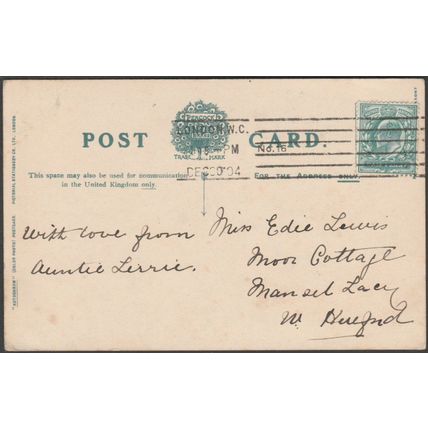 LONDON.W.C.
PM No.16
DEC 30 04
POST CARD.
TRADE MARK
This space may also be used for communication
in the United Kingdom only.
FOR THE ADDRESS ONLY.
With love from
Auntie Lerrie.
Miss Edie Lewis
Moor Cottage
Mansel Lacy
Nr Hereford
"AUTOCHROM" (COLOR PHOTO) POSTCARD. PICTORIAL STATIONERY CO. LTD., LONDON.